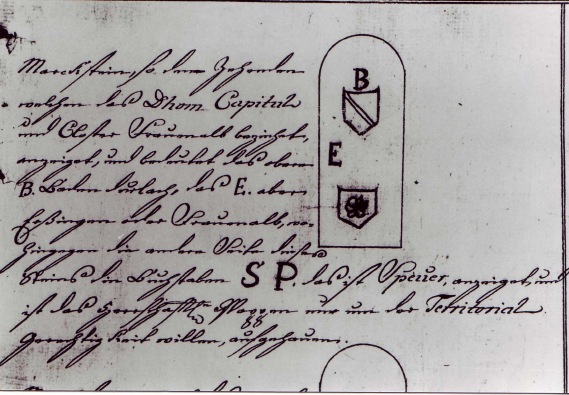 Marckstein, so dem Zehenden
welchen das Dhom Capitul
und Closter Frauenalb beziehet,
anzeiget, und bedeutet das obere
B. Baaden durlach, das E. aber
Eßingen oder Frauenalb, wo
hingegen die andere Seite dieses
Steins die Buchstaben S P. das ist Speÿer, anzeiget, und
ist das Herrschafftl. Wappen nur um der Territorial
Gerechtigkeit willen, aufgehauen.
B
E